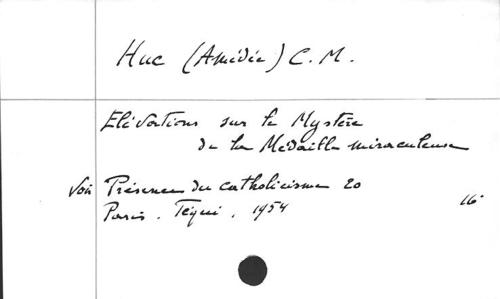 Huc (Amédée) C. M.
Elévations sur le Mystère
de la Médaille miraculeuse
Voir Présence du catholicisme 20
Paris. Téqui. 1954 16°